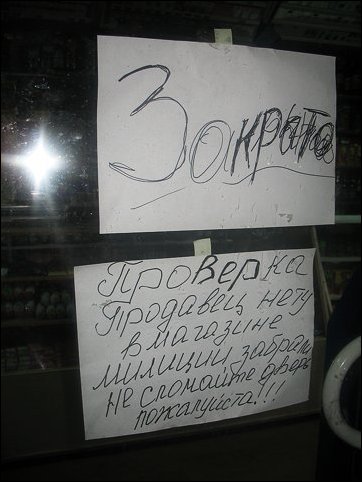 Закрыто
Проверка
Продавец нету
в магазине
милиции забрали
не сломайте дверь
пожалуйста!!!